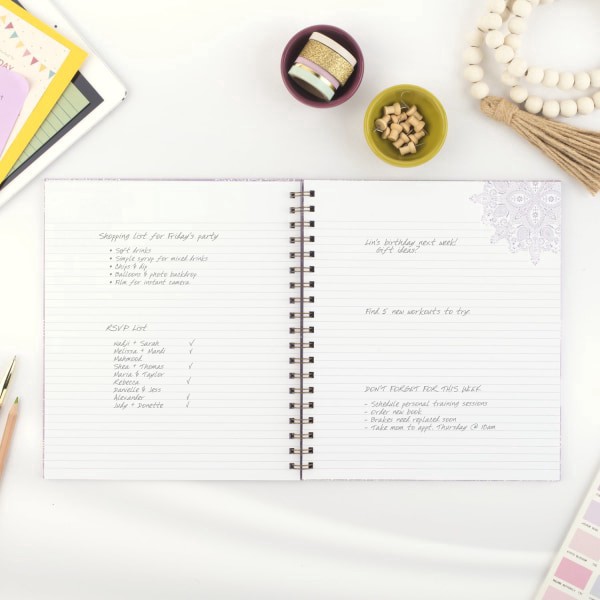 DAY
Shopping List for Friday's party
• Soft drinks
• Simple syrup for mixed drinks
• Chips & dip
• Balloons & photo backdrop
• Film for instant camera
RSVP List
Hadji + Sarah ✓
Melissa + Mandi ✓
Mahmoud
Shea + Thomas ✓
Maria & Taylor
Rebecca ✓
Danielle & Jess
Alexander ✓
Judy + Donette ✓
Lin's birthday next week!
Gift ideas?
Find 5 new workouts to try.
DON'T FORGET FOR THIS WEEK
- Schedule personal training sessions
- Order new book
- Brakes need replaced soon
- Take mom to appt. Thursday @ 10am